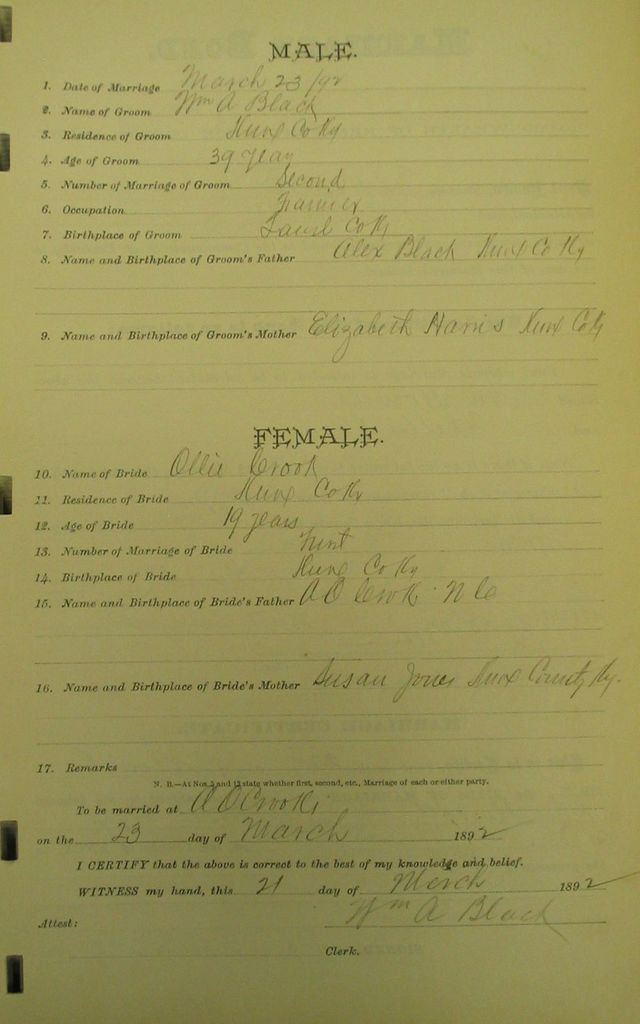 MALE.
1. Date of Marriage March 23/92
2. Name of Groom Wm A Black
3. Residence of Groom Knox Co Ky
4. Age of Groom 39 years
5. Number of Marriage of Groom Second
6. Occupation Farmer
7. Birthplace of Groom Laurel Co Ky
8. Name and Birthplace of Groom's Father Alex Black Knox Co Ky
9. Name and Birthplace of Groom's Mother Elizabeth Harris Knox Co Ky
FEMALE.
10. Name of Bride Ollie Crook
11. Residence of Bride Knox Co Ky
12. Age of Bride 19 years
13. Number of Marriage of Bride First
14. Birthplace of Bride Knox Co Ky
15. Name and Birthplace of Bride's Father A O Crook N C
16. Name and Birthplace of Bride's Mother Susan Jones Knox County Ky.
17. Remarks
N. B.—At Nos. 5 and 13 state whether first, second, etc., Marriage of each or either party.
To be married at A O Crooks
on the 23 day of March 1892
I CERTIFY that the above is correct to the best of my knowledge and belief.
WITNESS my hand, this 21 day of March 1892
Wm A Black
Attest:
Clerk.